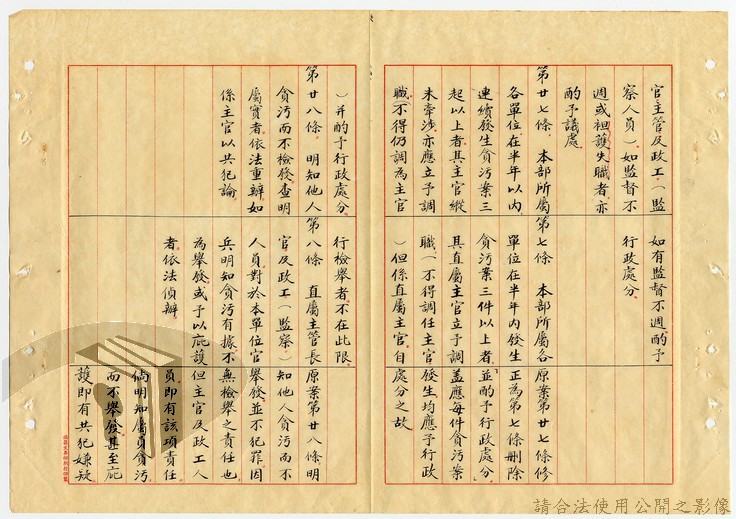 官主管及政工(監
察人員)如監督不
週或袒護失職者亦
酌予議處
第廿七條 本部所屬
各單位在半年以內
連續發生貪污案三
起以上者其主官縱
未牽涉亦應立予調
職(不得仍調為主官
)并酌予行政處分
第廿八條 明知他人
貪污而不檢發查明
屬實者依法重辦如
係主官以共犯論
如有監督不週酌予
行政處分
第七條 本部所屬各
單位在半年內發生
貪污案三件以上者
其直屬主官立予調
職(不得調任主官
)但係直屬主官自
行檢舉者不在此限
第八條 直屬主管長
官及政工(監察)
人員對於本單位官
兵明知貪污有據不
為舉發或予以庇護
者依法偵辦
原案第廿七條修
正為第七條刪除
並酌予行政處分
蓋應每件貪污案
發生均應予行政
處分之故
原案第廿八條明
知他人貪污而不
舉發並不犯罪因
無檢舉之責任也
但主官及政工人
員即有該項責任
倘明知屬員貪污
而不舉發甚至庇
護即有共犯嫌疑
請合法使用公開之影像